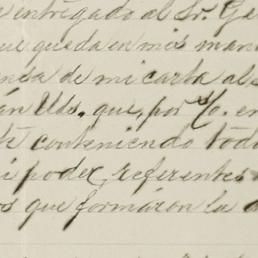 entregado al Sr. Ge
que queda en mis man
de mi carta al
Uds. que, por s/o. en
conteniendo tod
poder, referentes
os que formaron la